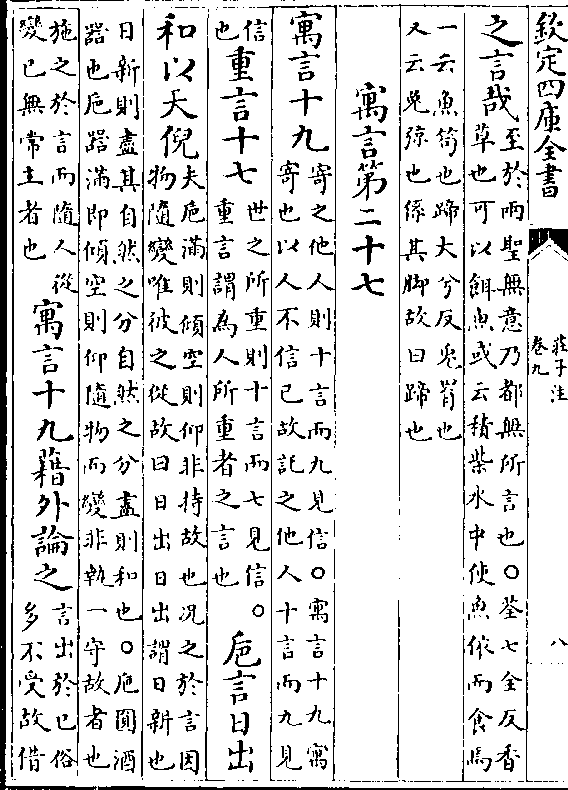 欽定四庫全書
莊子注
卷九
八
之言哉至於兩聖無意乃都無所言也○荃七全反香草也可以餌魚或云積柴水中使魚依而食焉
一云魚笱也蹄大兮反兎罥也又云兎弶也係其脚故曰蹄也
寓言第二十七
寓言十九寄之他人則十言而九見信○寓言十九寓寄也以人不信已故託之他人十言而九見
信也重言十七世之所重則十言而七見信○重言謂為人所重者之言也巵言日出
和以天倪夫巵滿則傾空則仰非持故也况之於言因物隨變唯彼之從故曰日出日出謂日新也
日新則盡其自然之分自然之分盡則和也○巵圓酒器也巵器滿即傾空則仰隨物而變非執一守故者也
施之於言而隨人從變已無常主者也寓言十九藉外論之言出於已俗多不受故借